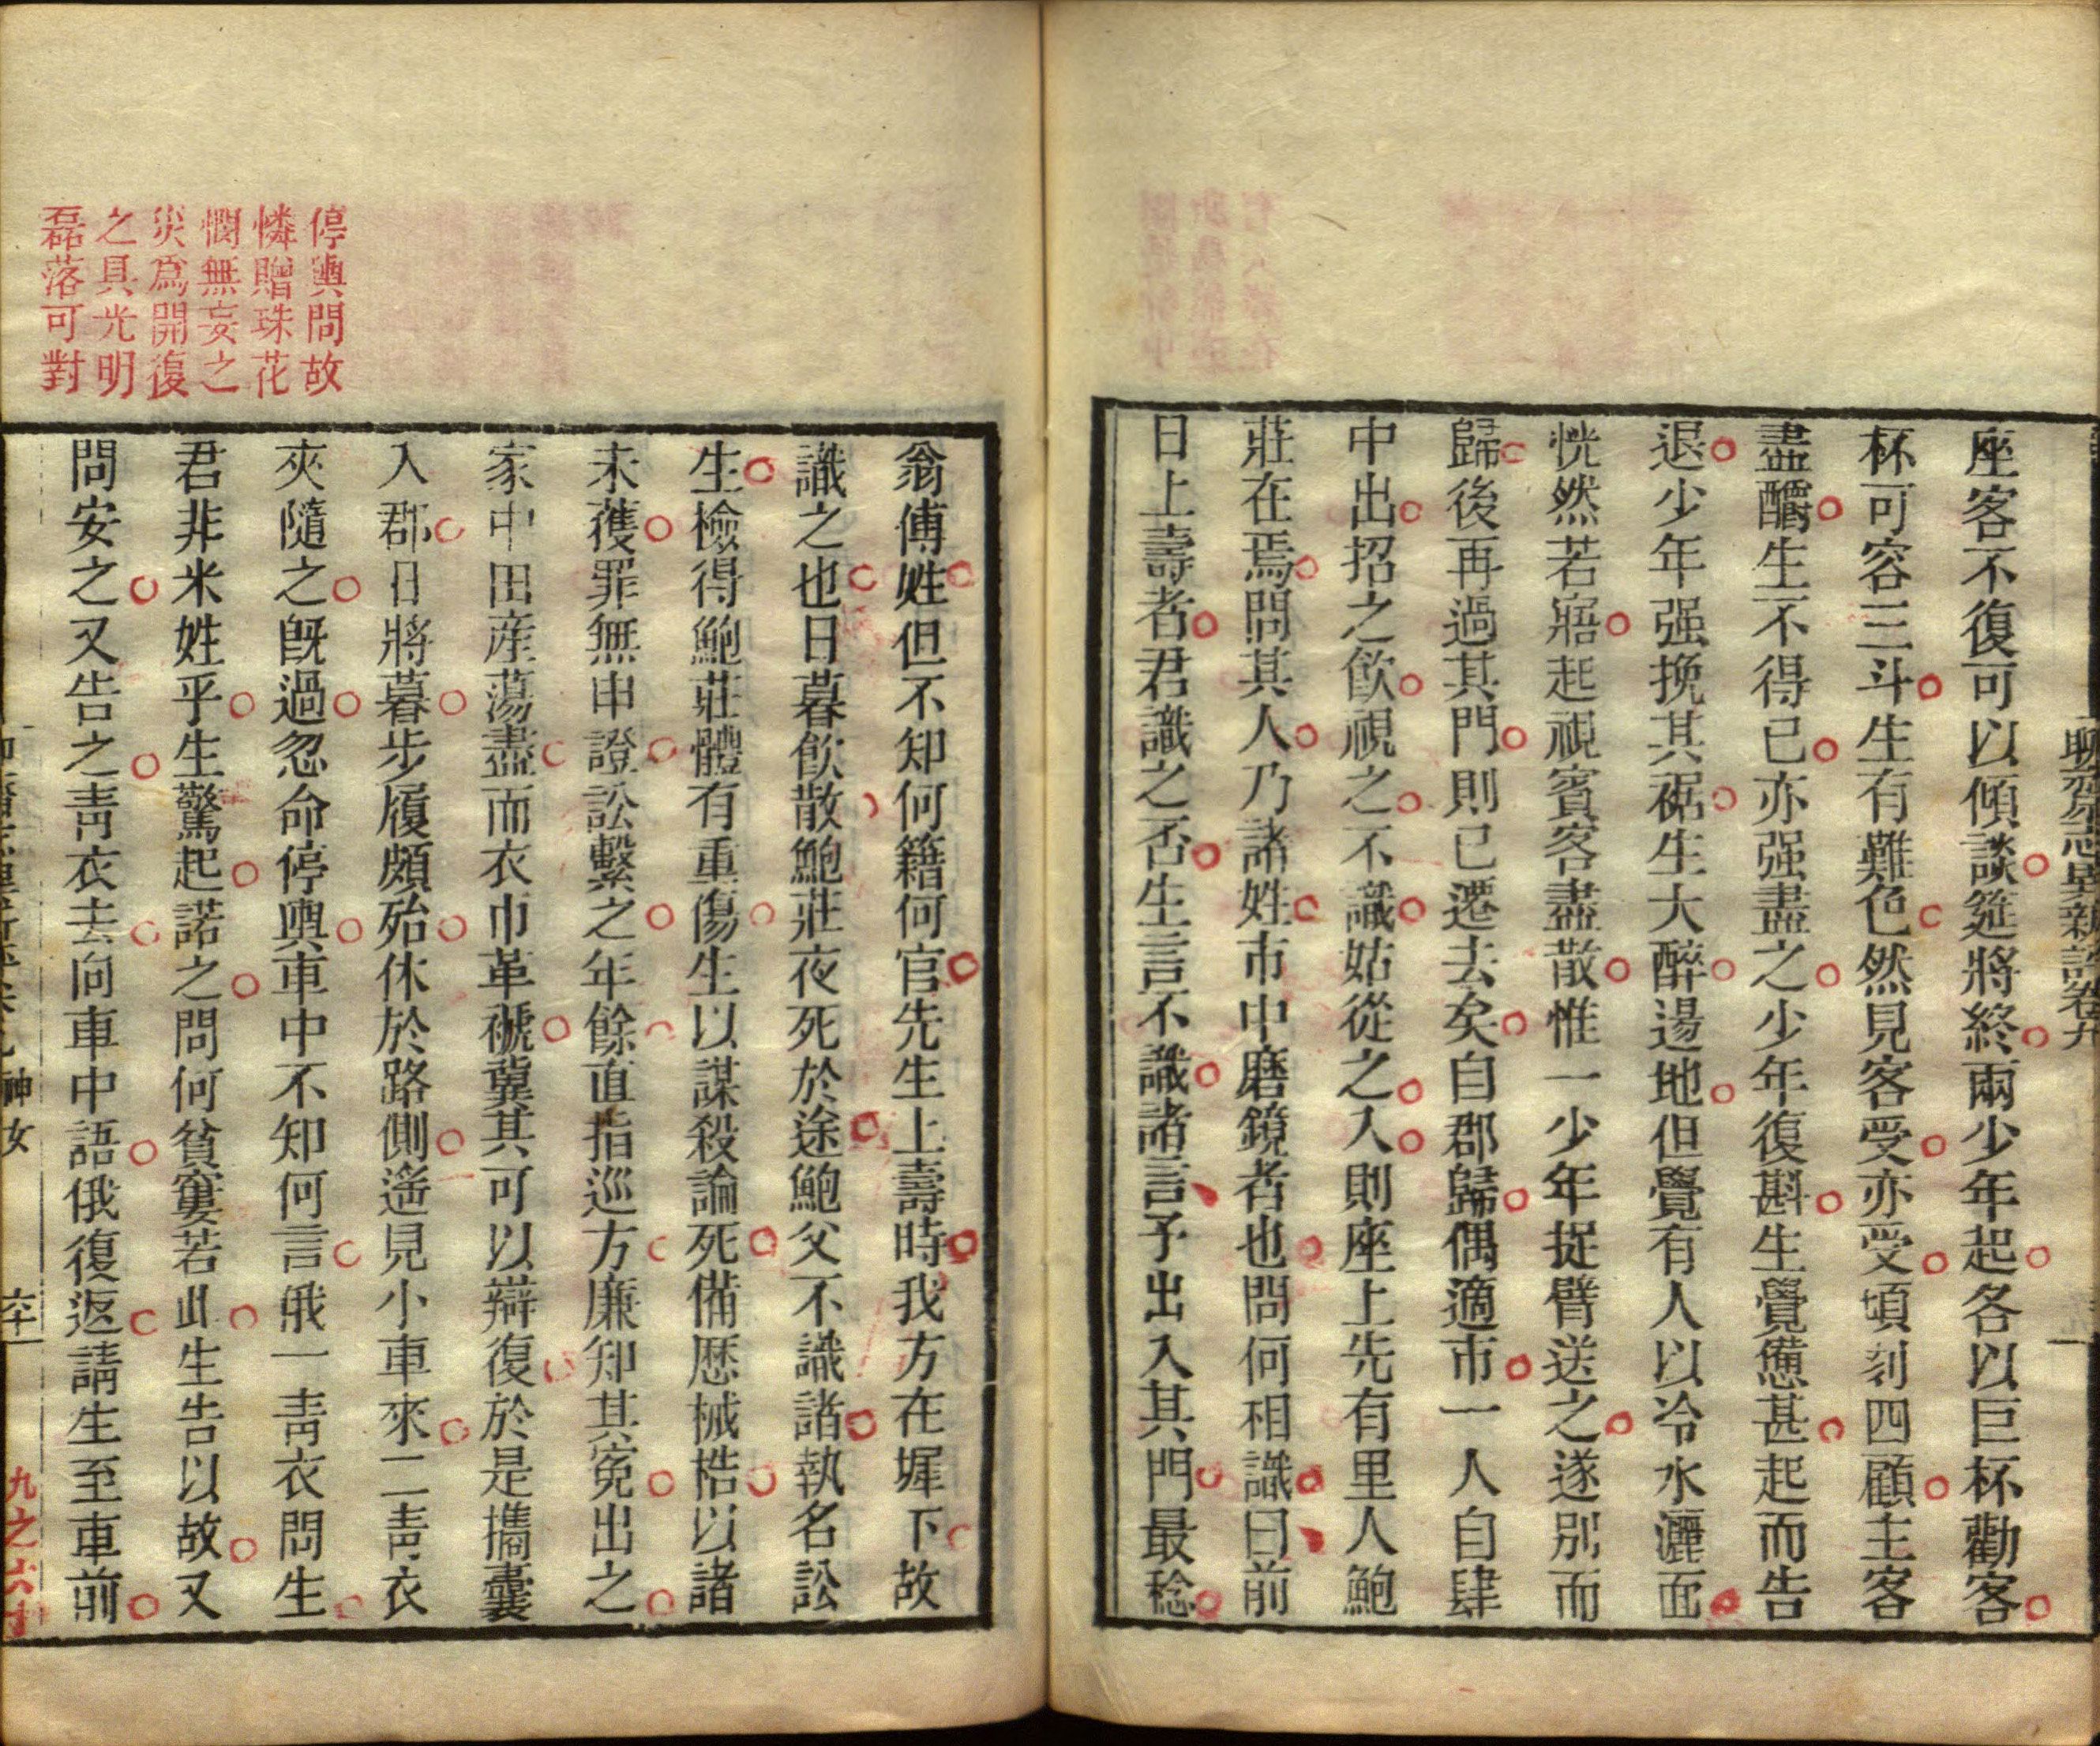 聊齋志異新評卷九
座客不復可以傾談筵將終兩少年起各以巨杯勸客
杯可容三斗生有難色然見客受亦受頃刻四顧主客
盡釂生不得已亦强盡之少年復斟生覺憊甚起而告
退少年强挽其裾生大醉逿地但覺有人以冷水灑面
恍然若寤起視賓客盡散惟一少年捉臂送之遂別而
歸後再過其門則已遷去矣自郡歸偶適市一人自肆
中出招之飮視之不識姑從之入則座上先有里人鮑
莊在焉問其人乃諸姓市中磨鏡者也問何相識曰前
日上壽者君識之否生言不識諸言予出入其門最稔
翁傅姓但不知何籍何官先生上壽時我方在墀下故
識之也日暮飮散鮑莊夜死於途鮑父不識諸執名訟
生檢得鮑莊體有重傷生以謀殺論死備歴械梏以諸
未獲罪無申證訟繫之年餘直指巡方廉知其寃出之
家中田産蕩盡而衣巾革褫冀其可以辯復於是攜囊
入郡日將暮步履頗殆休於路側遙見小車來二靑衣
夾隨之旣過忽命停輿車中不知何言俄一靑衣問生
君非米姓乎生驚起諾之問何貧窶若此生告以故又
問安之又告之靑衣去向車中語俄復返請生至車前
神女
六十一
九之六十一
停輿問故
憐贈珠花
憫無妄之
災爲開復
之具光明
磊落可對